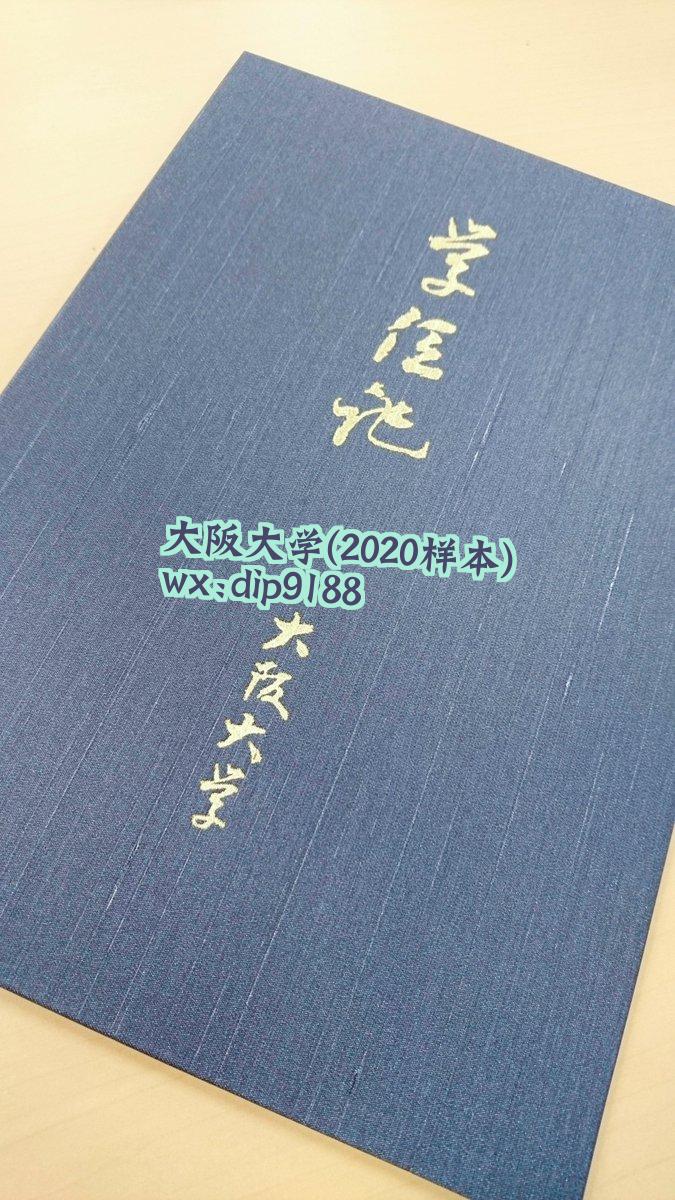 学位記
大阪大学(2020样本)
wx:dip9188
大阪大学